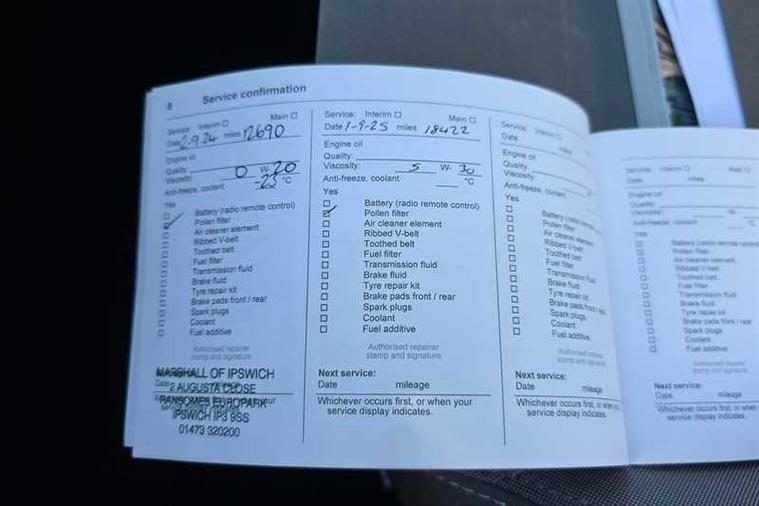 8
Service confirmation
Service: Interim ☐ Main ☐
Date 2-9-24 miles 12690
Engine oil
Quality:
Viscosity: 0 W- 20
Anti-freeze, coolant -25 °C
Yes
Battery (radio remote control)
Pollen filter
Air cleaner element
Ribbed V-belt
Toothed belt
Fuel filter
Transmission fluid
Brake fluid
Tyre repair kit
Brake pads front / rear
Spark plugs
Coolant
Fuel additive
Authorised repairer
stamp and signature
MARSHALL OF IPSWICH
2 AUGUSTA CLOSE
RANSOMES EUROPARK
IPSWICH IP3 9SS
01473 320200
Service: Interim ☐ Main ☐
Date 1-9-25 miles 18422
Engine oil
Quality:
Viscosity: 5 W- 30
Anti-freeze, coolant °C
Yes
Battery (radio remote control)
Pollen filter
Air cleaner element
Ribbed V-belt
Toothed belt
Fuel filter
Transmission fluid
Brake fluid
Tyre repair kit
Brake pads front / rear
Spark plugs
Coolant
Fuel additive
Authorised repairer
stamp and signature
Next service:
Date mileage
Whichever occurs first, or when your
service display indicates.
Service: Interim ☐
Date miles
Engine oil
Quality:
Viscosity:
Anti-freeze, coolant
Yes
Battery (radio remote
Pollen filter
Air cleaner element
Ribbed V-belt
Toothed belt
Fuel filter
Transmission fluid
Brake fluid
Tyre repair kit
Brake pads front / rear
Spark plugs
Coolant
Fuel additive
Authorised repairer
stamp and signature
Next service:
Date mileage
Whichever occurs first, or when you
service display indicates.
Service: Interim ☐ Main ☐
Date miles
Engine oil
Quality:
Viscosity: W-
Anti-freeze, coolant °C
Yes
Battery (radio remote control
Pollen filter
Air cleaner element
Ribbed V-belt
Toothed belt
Fuel filter
Transmission fluid
Brake fluid
Tyre repair kit
Brake pads front / rear
Spark plugs
Coolant
Fuel additive
Authorised repairer
stamp and signature
Next service:
Date mileage
Whichever occurs first, or when
service display indicates.